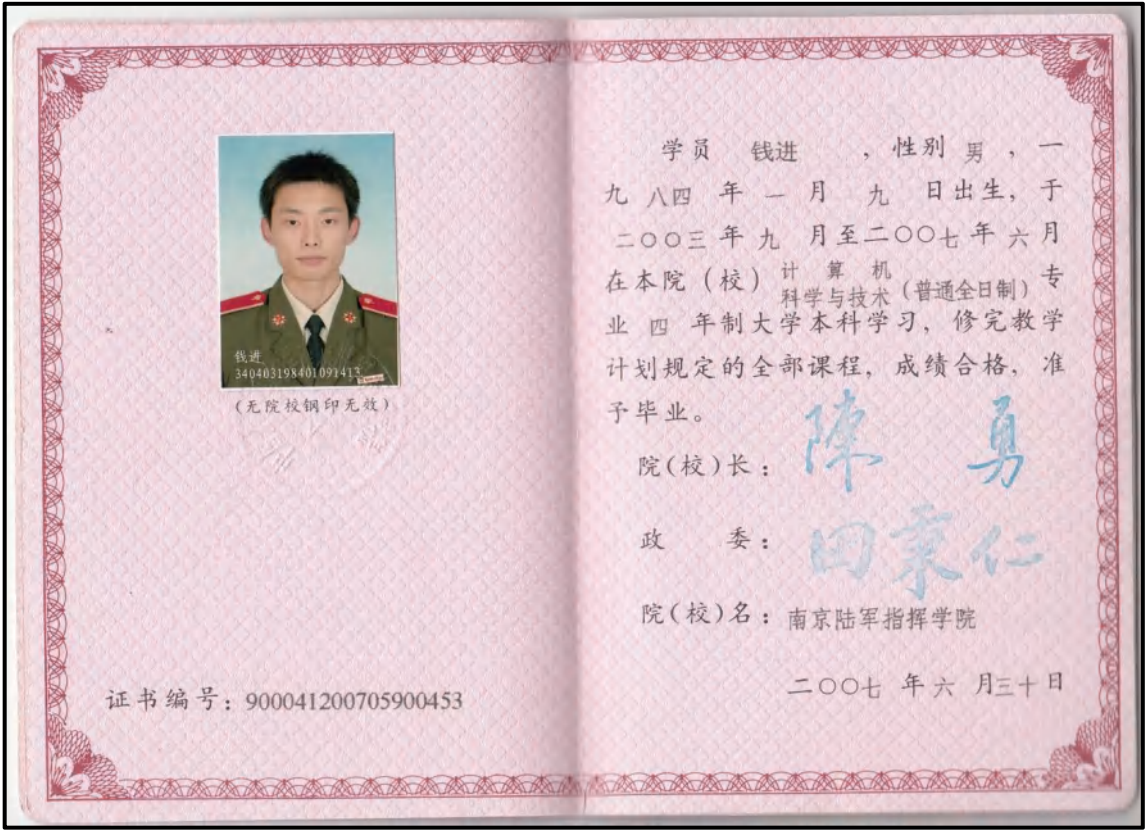 钱进
340403198401091413
(无院校钢印无效)
证书编号:900041200705900453
学员 钱进 ,性别 男 ,一
九 八四 年 一 月 九 日出生,于
二〇〇三 年 九 月至二〇〇七 年 六 月
在本院(校)计算机科学与技术(普通全日制)专
业 四 年制大学本科学习,修完教学
计划规定的全部课程,成绩合格,准
予毕业。
院(校)长:陳勇
政委:田秉仁
院(校)名:南京陆军指挥学院
二〇〇七 年 六 月三十日